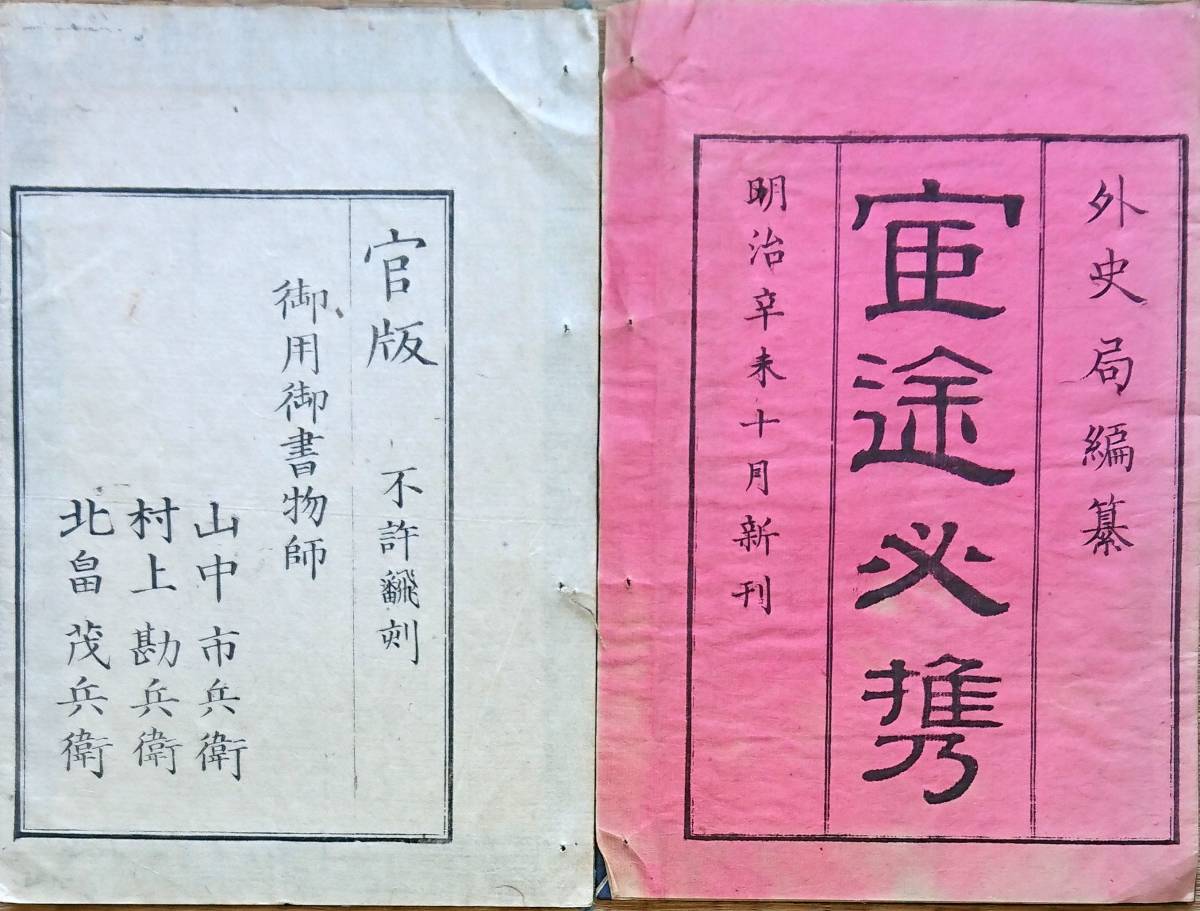 外史局編纂
宦途必携
明治辛未十月新刊
官版 不許飜刻
御用御書物師
山中市兵衛
村上勘兵衛
北畠茂兵衛